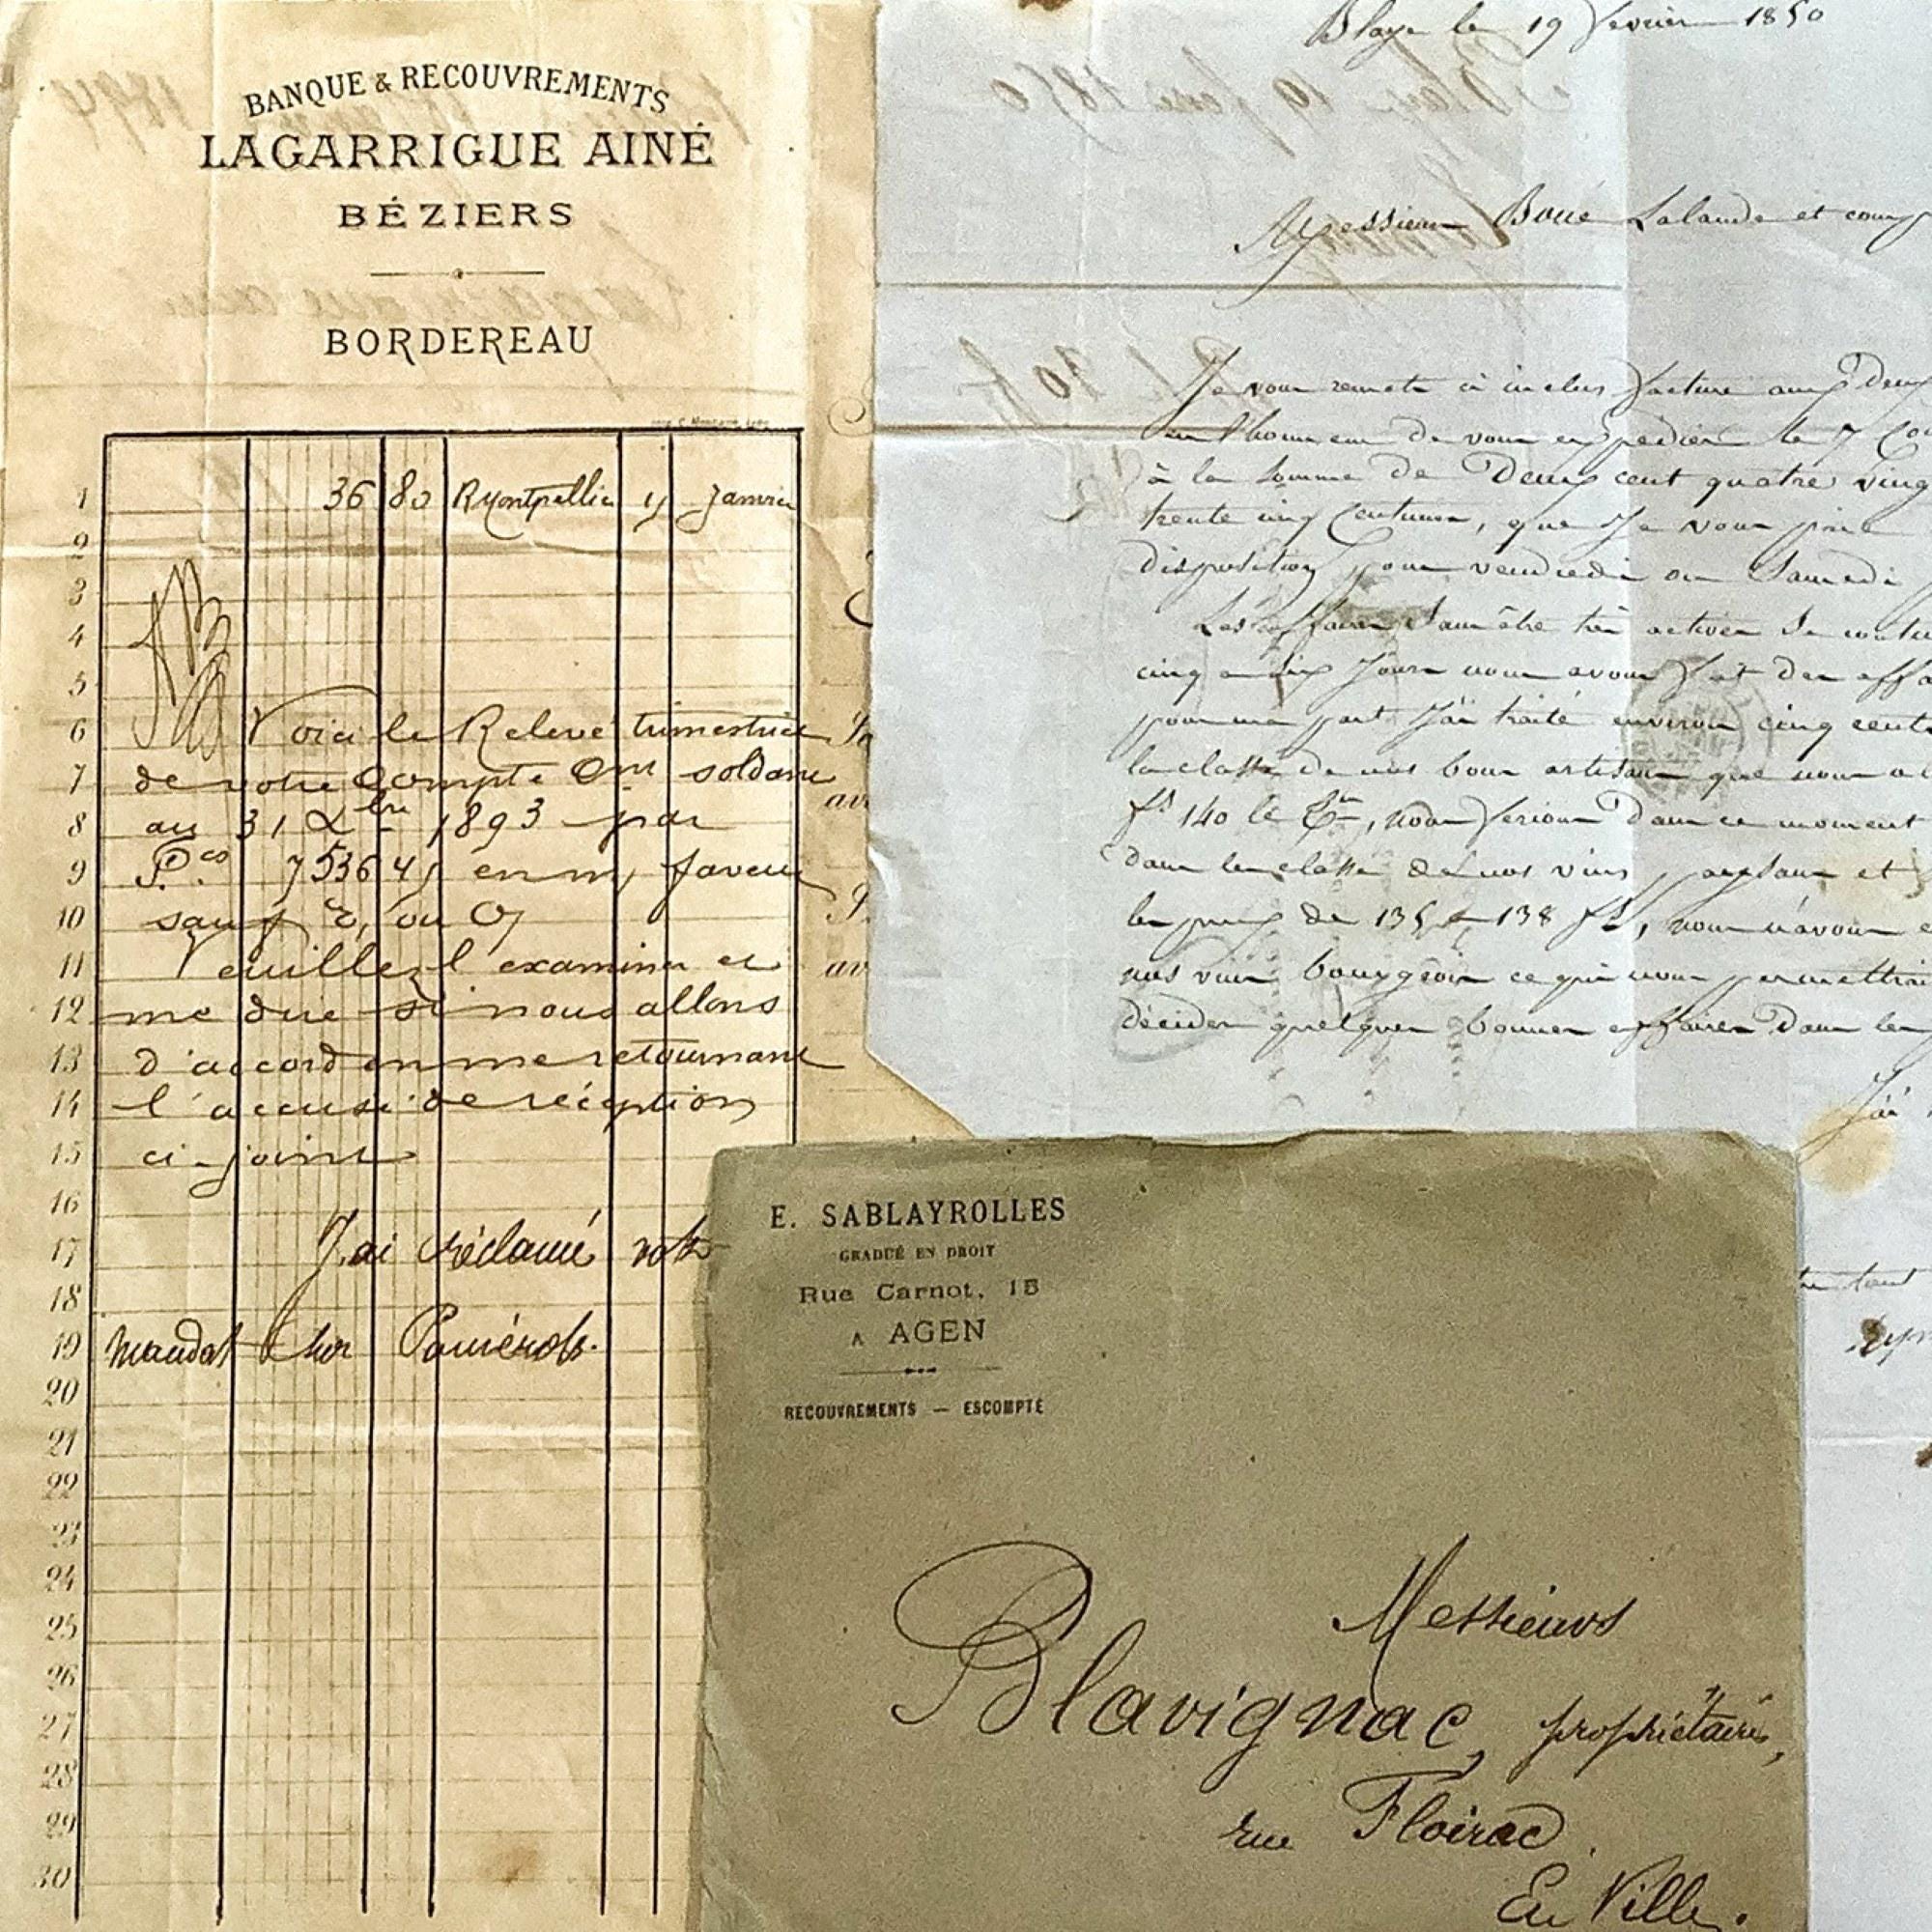 BANQUE & RECOUVREMENTS
LAGARRIGUE AINÉ
BÉZIERS
BORDEREAU
1 36 80 Montpellier 15 Janvier
2
3
4
5
6 Voici le Relevé trimestriel
7 de votre Compte Ct soldant
8 au 31 Xbre 1893 par
9 F.cs 7536 45 en m/ faveur
10 sauf E, ou O/
11 Veuillez l'examiner et
12 me dire si nous allons
13 d'accord en me retournant
14 l'accusé de réception
15 ci-joint
16
17 J'ai réclamé votre
18
19 mandat sur Pomérols.
20
21
22
23
24
25
26
27
28
29
30
Blaye le 19 fevrier 1850
Messieurs Boué Lalande et comp
Je vous remets ci inclus facture aux Deux
eu l'honneur de vous expedier le 7 Cou
à la somme de Deux cent quatre vingt
trente cinq Centimes, que Je vous prie
disposition pour vendredi ou Samedi
Les affaires Sans être très actives Se
cinq a Six Jours nous avons fait des affa
pour ma part J'ai traité environ cinq cents
la classe de nos bons artisans que nous
fs 140 le Tau, nous ferions Dans ce moment
dans la classe de nos vins paysans et
les prix de 135 a 138 fs, nous n'avons
nos vins bourgeois ce qui nous permettrai
décider quelques bonnes affaires Dans les
J'ai
E. SABLAYROLLES
GRADUÉ EN DROIT
Rue Carnot, 15
A AGEN
RECOUVREMENTS — ESCOMPTE
Messieurs
Blavignac, propriétaires,
rue Floirac
En Ville.